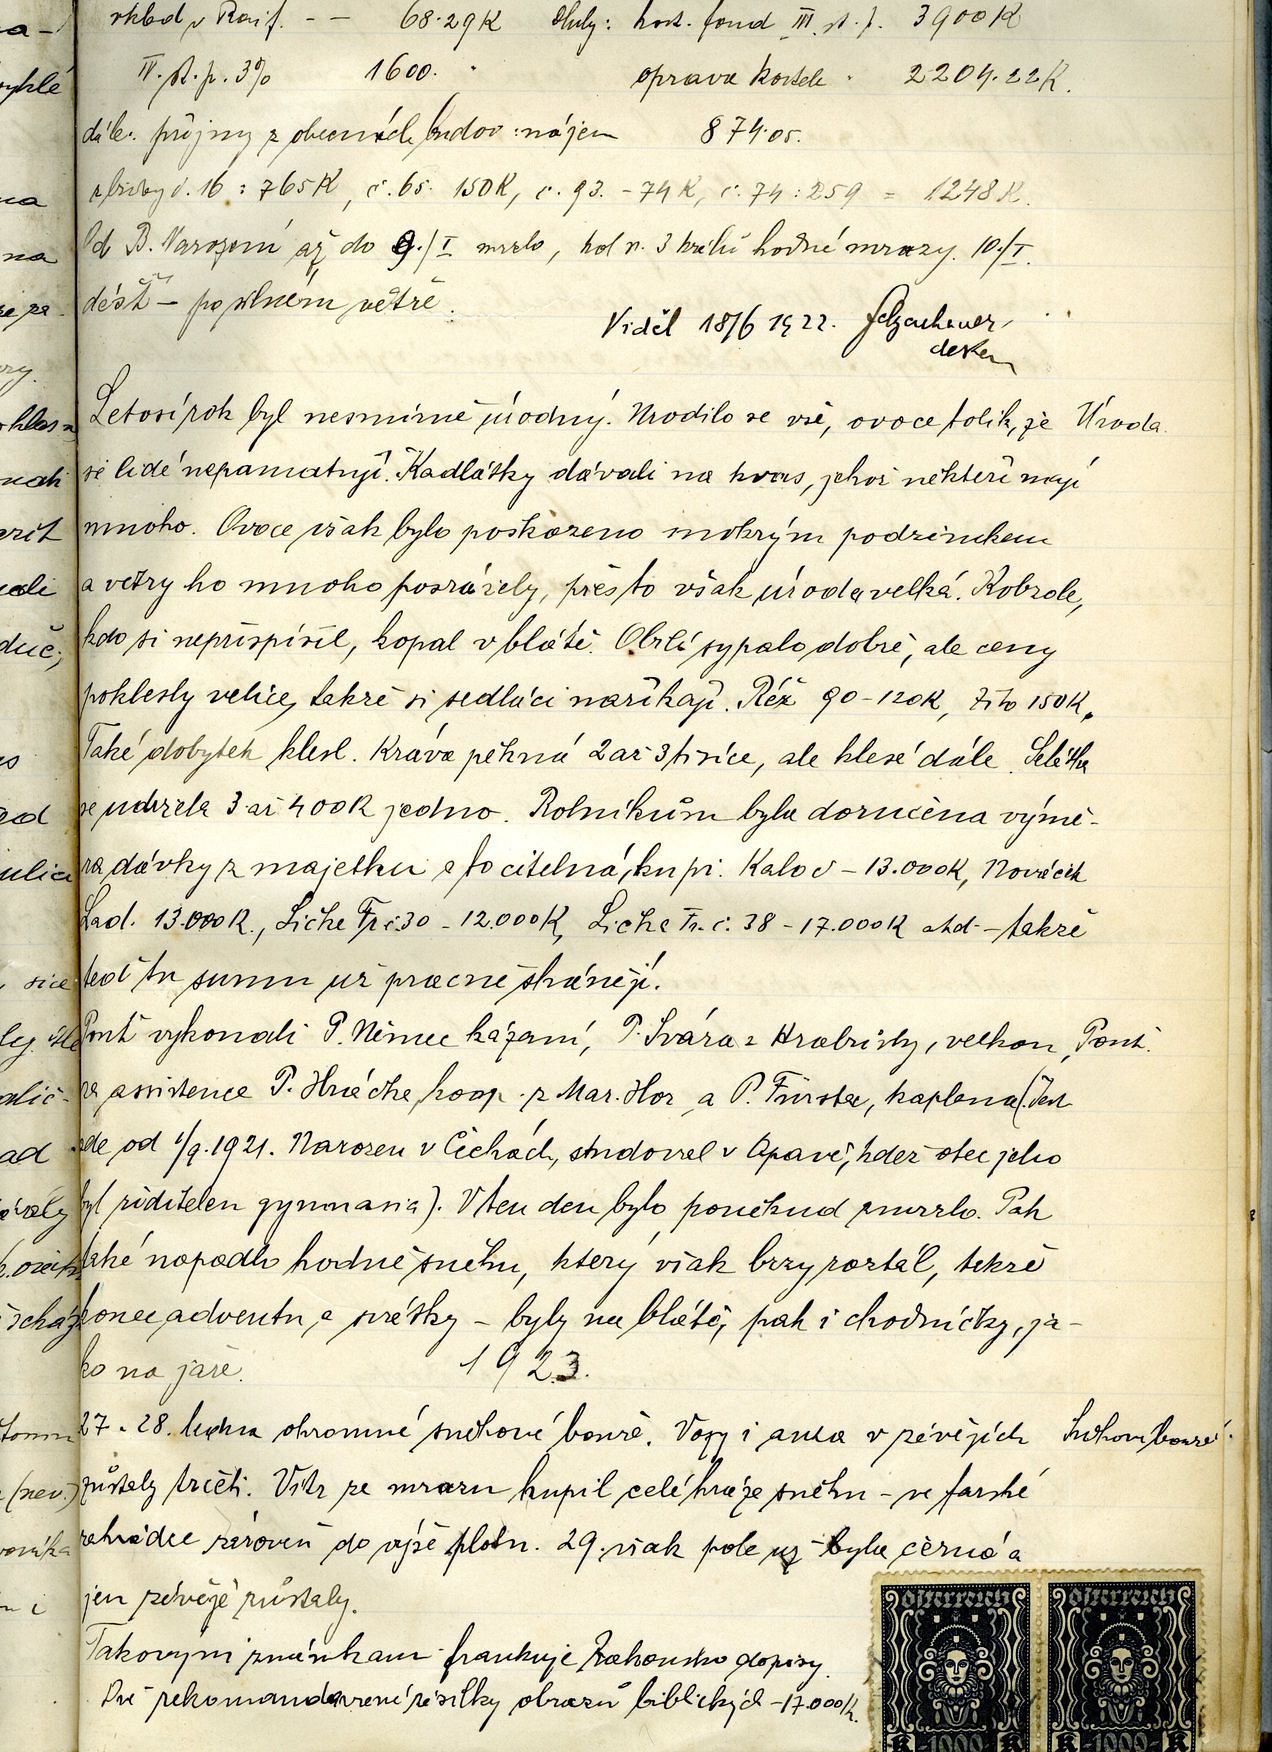 vklad v Raif. - - 68.29K Dluhy: kost. fond III. st. p. 3900K
IV. st. p. 3% 1600. oprava kostela 2204.22K.
dále: příjmy z obecních budov: nájem 874.05.
z č. 16: 765K, č. 65. 150K, č. 93. - 74K, č. 74: 259 = 1248K.
Od B. Narození až do 9./I mrzlo, kol sv. 3 králů hodné mrazy. 10./I.
déšť - po silném větře.
Viděl 18/6 1922.
děkan
Letoší rok byl nesmírně úrodný. Urodilo se vše, ovoce tolik, že Úroda.
se lidé nepamatují. Kadlátky dávali na kvas, jehož někteří mají
mnoho. Ovoce však bylo poškozeno mokrým podzimkem
a větry ho mnoho posrážely, přes to však úroda velká. Kobzole,
kdo si nepřispíšil, kopal v blátě. Obilí sypalo dobře, ale ceny
poklesly velice, takže si sedláci naříkají. Réž 90-120K, žito 150K.
Také dobytek klesl. Kráva pěkná 2 až 3 tisíce, ale klesá dále. Selátka
se udržela 3 až 400K jedno. Rolníkům byla doručena výmě-
ra dávky z majetku a to citelná, ku př. Kaloč - 13.000K, Nováček
Lad. 13.000K., Lička Fr. č. 30 - 12.000K, Lička Fr. č. 38 - 17.000K atd - takže
teď tu sumu už pracně shánějí.
Pouť vykonali P. Němec kázaní, P. Svára z Hrabišky, velkou, Pouť.
za assistence P. Hnáčka, koop. z Mar. Hor a P. Fürsta, kaplana (Ten
zde od 1/9. 1921. Narozen v Čechách, studoval v Opavě, kdež otec jeho
byl ředitelem gymnasia). V ten den bylo poněkud zmrzlo. Pak
také napadlo hodně sněhu, který však brzy roztál, takže
konec adventu a svátky - byly na blátě, pak i chodníčky, ja-
ko na jaře. 1923.
27. - 28. ledna ohromné sněhové bouře. Vozy i auta v závějích Sněhová bouře.
zůstaly trčeti. Vítr ze mrazu kupil celé hráze sněhu - ve farské
zahrádce zároveň do výše plotu. 29. však pole už byla černá a
jen závěje zůstaly.
Takovými známkami frankuje Rakousko dopisy.
Dvě rekomandované zásilky obrazů biblických - 17.000K.
Österreich Österreich
K 1000 K K 1000 K